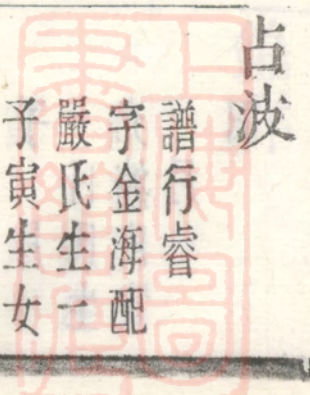 占波
譜行睿
字金海配
嚴氏生一
子寅生女